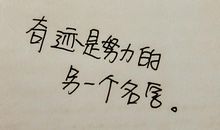 奇迹是努力的
另一个名字。